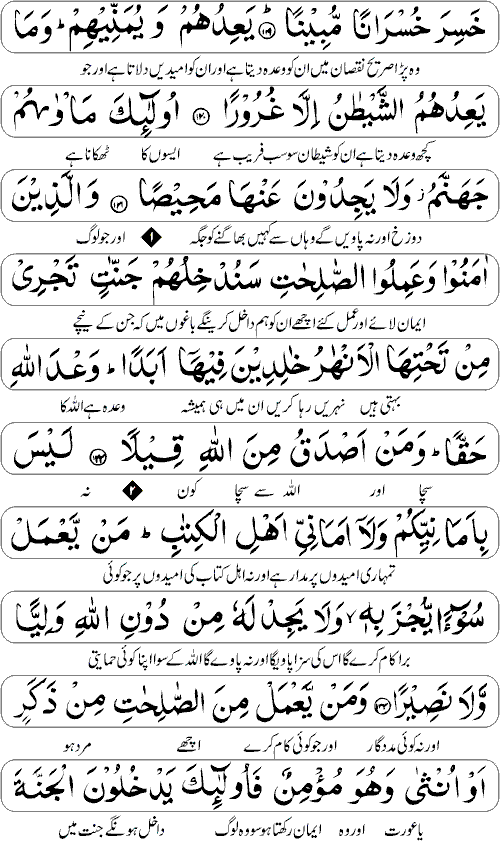 خَسِرَ خُسْرَانًا مُّبِيْنًا ؕ ﴿۱۱۹﴾ يَعِدُهُمْ وَ يُمَنِّيْهِمْ ؕ وَمَا
وہ پڑا صریح نقصان میں ان کو وعدہ دیتا ہے اور ان کو امیدیں دلاتا ہے اور جو
يَعِدُهُمُ الشَّيْطٰنُ اِلَّا غُرُوْرًا ﴿۱۲۰﴾ اُولٰٓئِكَ مَاْوٰىهُمْ
کچھ وعدہ دیتا ہے ان کو شیطان سو سب فریب ہے ایسوں کا ٹھکانا ہے
جَهَنَّمُ ز وَلَا يَجِدُوْنَ عَنْهَا مَحِيْصًا ﴿۱۲۱﴾ وَالَّذِيْنَ
دوزخ اور نہ پاویں گے وہاں سے کہیں بھاگنے کو جگہ ۱ اور جو لوگ
اٰمَنُوْا وَعَمِلُوا الصّٰلِحٰتِ سَنُدْخِلُهُمْ جَنّٰتٍ تَجْرِيْ
ایمان لائے اور عمل کئے اچھے ان کو ہم داخل کرینگے باغوں میں کہ جن کے نیچے
مِنْ تَحْتِهَا الْاَنْهٰرُ خٰلِدِيْنَ فِيْهَآ اَبَدًا ؕ وَعْدَ اللّٰهِ
بہتی ہیں نہریں رہا کریں ان میں ہی ہمیشہ وعدہ ہے اللہ کا
حَقًّا ؕ وَمَنْ اَصْدَقُ مِنَ اللّٰهِ قِيْلًا ﴿۱۲۲﴾ لَيْسَ
سچا اور اللہ سے سچا کون ۲ نہ
بِاَمَانِيِّكُمْ وَلَآ اَمَانِيِّ اَهْلِ الْكِتٰبِ ؕ مَنْ يَّعْمَلْ
تمہاری امیدوں پر مدار ہے اور نہ اہل کتاب کی امیدوں پر جو کوئی
سُوْٓءًا يُّجْزَ بِهٖ ۙ وَلَا يَجِدْ لَهٗ مِنْ دُوْنِ اللّٰهِ وَلِيًّا
برا کام کرے گا اس کی سزا پاویگا اور نہ پاوے گا اللہ کے سوا اپنا کوئی حمایتی
وَّلَا نَصِيْرًا ﴿۱۲۳﴾ وَمَنْ يَّعْمَلْ مِنَ الصّٰلِحٰتِ مِنْ ذَكَرٍ
اور نہ کوئی مددگار اور جو کوئی کام کرے اچھے مرد ہو
اَوْ اُنْثٰى وَهُوَ مُؤْمِنٌ فَاُولٰٓئِكَ يَدْخُلُوْنَ الْجَنَّةَ
یا عورت اور وہ ایمان رکھتا ہو سو وہ لوگ داخل ہونگے جنت میں